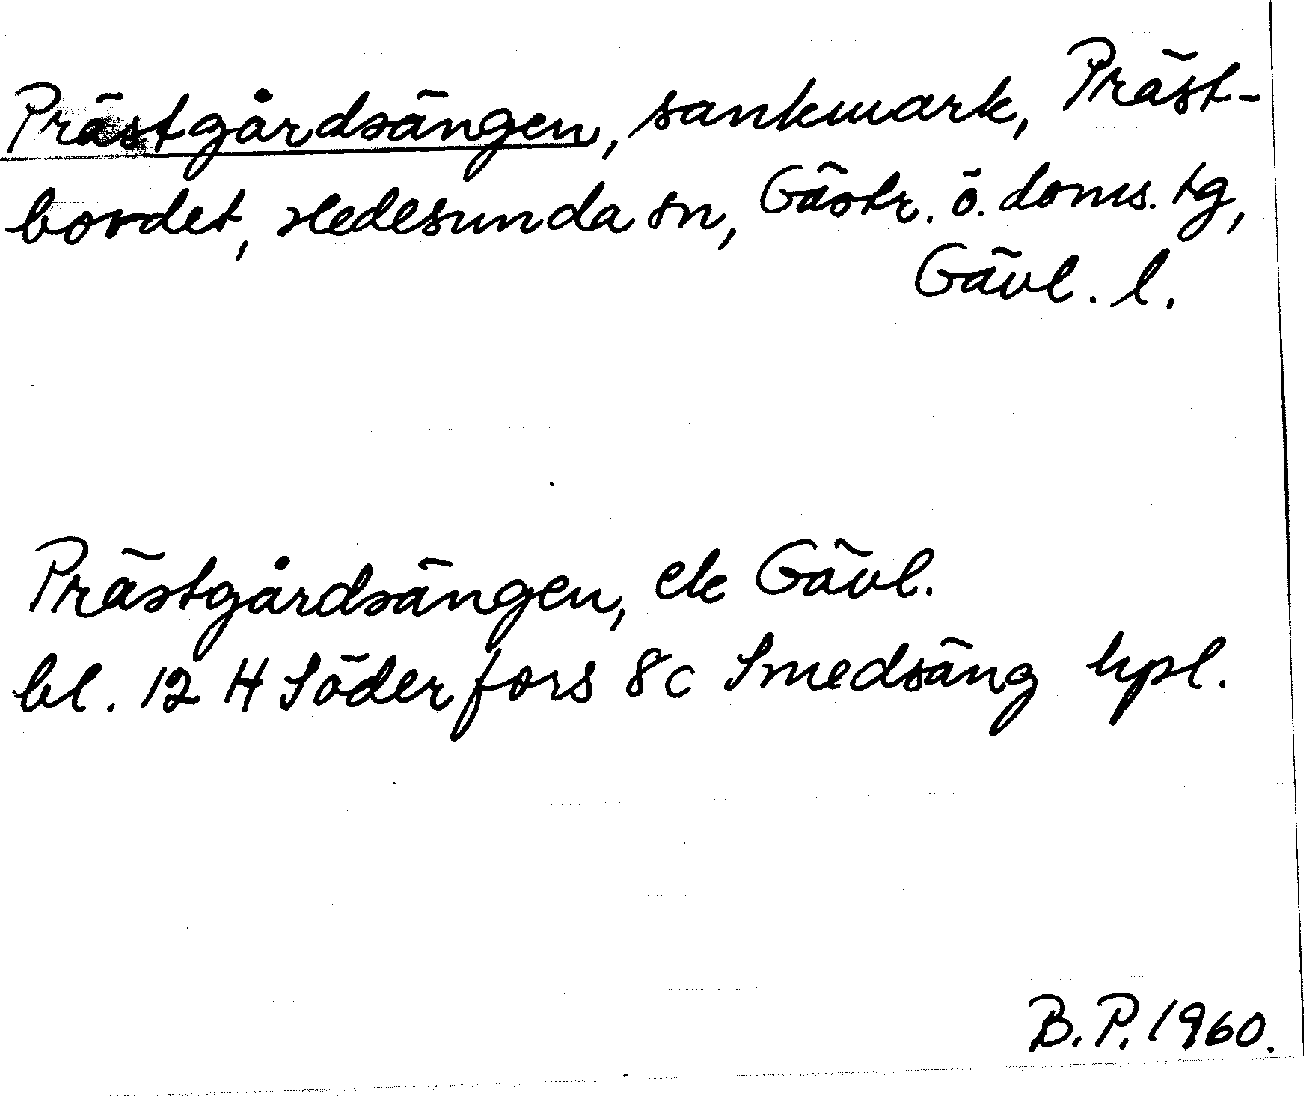 Prästgårdsängen, sankmark, Präst-
bordet, Hedesunda sn, Gästr. ö. doms. tg,
Gävl. l.
Prästgårdsängen, ek Gävl.
bl. 12 H Söderfors 8c Smedsäng hpl.
B. P. 1960.